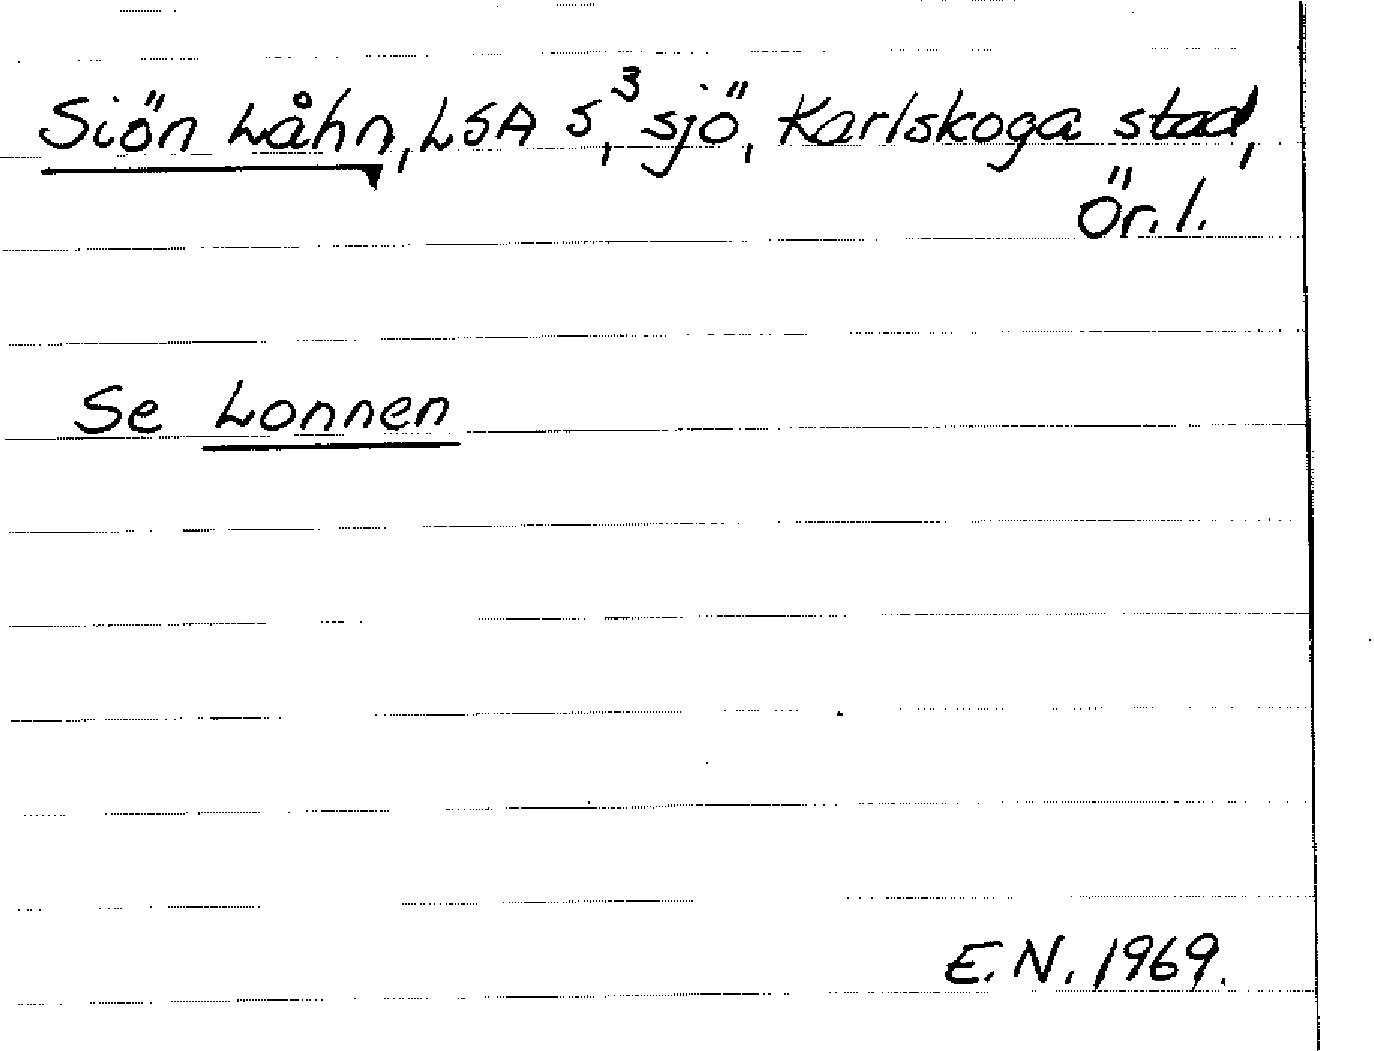 Siön Låhn, LSA S³, sjö, Karlskoga stad,
Ör. l.
Se Lonnen
E.N. 1969.